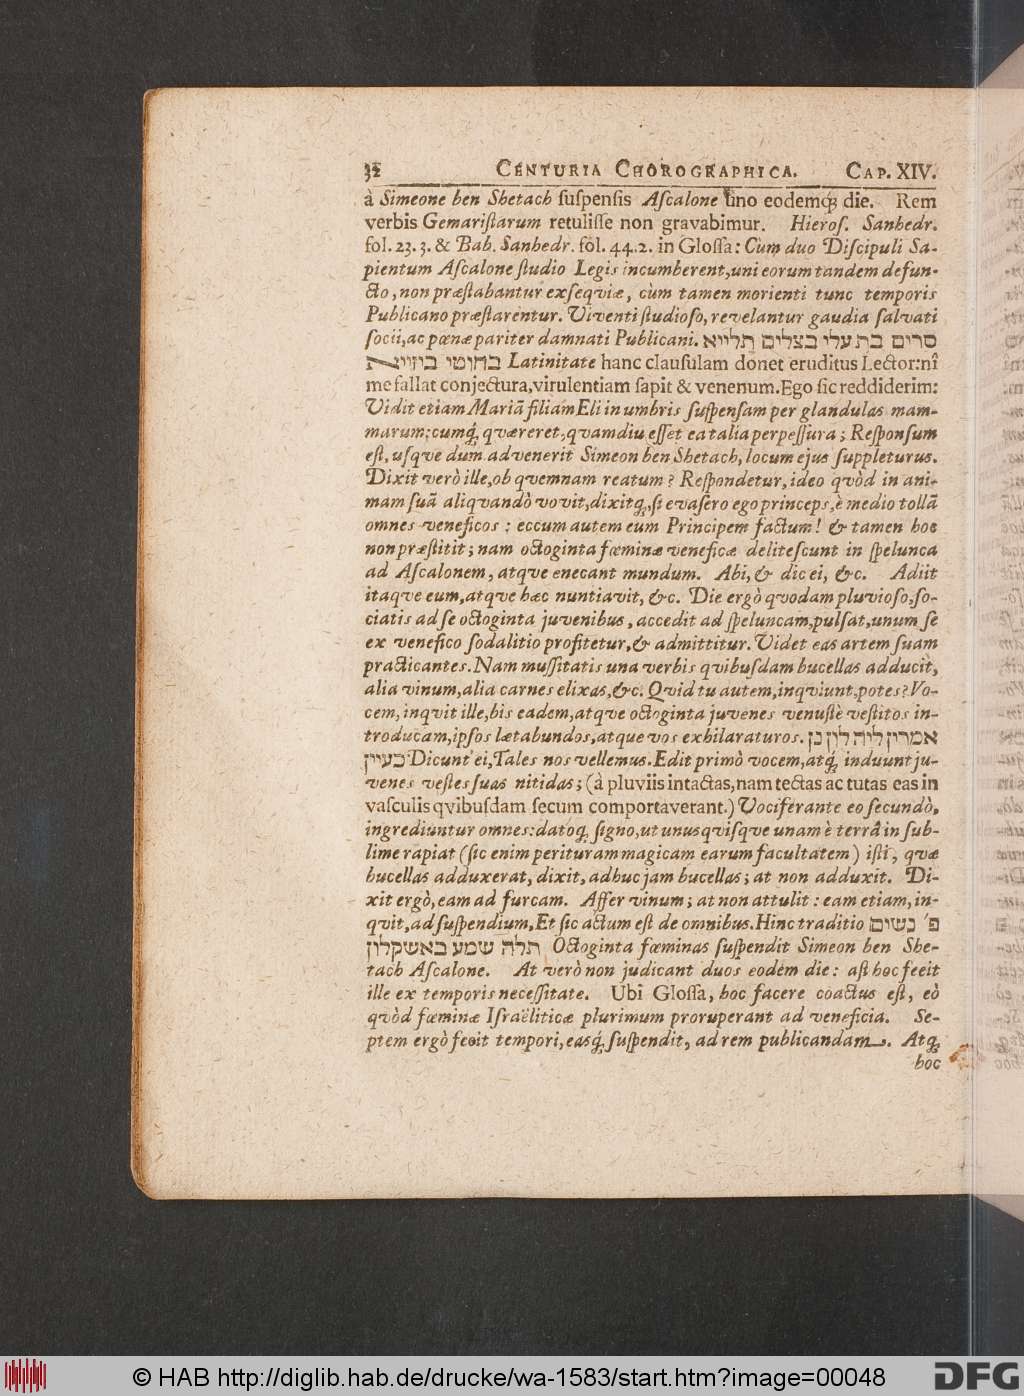 32 CENTURIA CHOROGRAPHICA. CAP. XIV.
à Simeone ben Shetach suspensis Ascalone uno eodemq́; die. Rem
verbis Gemaristarum retulisse non gravabimur. Hieros. Sanhedr.
fol. 23. 3. & Bab. Sanhedr. fol. 44. 2. in Glossa: Cum duo Discipuli Sa-
pientum Ascalone studio Legis incumberent, uni eorum tandem defun-
cto, non præstabantur exseqviæ, cùm tamen morienti tunc temporis
Publicano præstarentur. Viventi studioso, revelantur gaudia salvati
socii, ac pœnæ pariter damnati Publicani. סרים בת עלי בצלים תלייא
בחוטי ביזייא Latinitate hanc clausulam donet eruditus Lector: nî
me fallat conjectura, virulentiam sapit & venenum. Ego sic reddiderim:
Vidit etiam Mariã filiam Eli in umbris suspensam per glandulas mam-
marum: cumq́; qværeret, qvamdiu esset ea talia perpessura; Responsum
est, usqve dum advenerit Simeon ben Shetach, locum ejus suppleturus.
Dixit verò ille, ob qvemnam reatum? Respondetur, ideo qvòd in ani-
mam suã aliqvandò vovit, dixitq́;, si evasero ego princeps, è medio tollã
omnes veneficos: eccum autem eum Principem factum! & tamen hoc
non præstitit; nam octoginta fœminæ veneficæ delitescunt in spelunca
ad Ascalonem, atqve enecant mundum. Abi, & dic ei, &c. Adiit
itaqve eum, atqve hæc nuntiavit, &c. Die ergò qvodam pluvioso, so-
ciatis ad se octoginta juvenibus, accedit ad speluncam, pulsat, unum se
ex venefico sodalitio profitetur, & admittitur. Videt eas artem suam
practicantes. Nam mussitatis una verbis qvibusdam bucellas adducit,
alia vinum, alia carnes elixas, &c. Qvid tu autem, inqviunt, potes? Vo-
cem, inqvit ille, bis eadem, atqve octoginta juvenes venustè vestitos in-
troducam, ipsos lætabundos, atque vos exhilaraturos. אמרין ליה לון כן
בעיין Dicunt ei, Tales nos vellemus. Edit primò vocem, atq́; induunt ju-
venes vestes suas nitidas; (à pluviis intactas, nam tectas ac tutas eas in
vasculis qvibusdam secum comportaverant.) Vociferante eo secundò,
ingrediuntur omnes: datoq́; signo, ut unusqvisqve unam è terrâ in sub-
lime rapiat (sic enim perituram magicam earum facultatem) isti, qvæ
bucellas adduxerat, dixit, adhuc jam bucellas; at non adduxit. Di-
xit ergò, eam ad furcam. Affer vinum; at non attulit: eam etiam, in-
qvit, ad suspendium, Et sic actum est de omnibus. Hinc traditio פ׳ נשים
תלה שמע באשקלון Octoginta fœminas suspendit Simeon ben She-
tach Ascalone. At verò non judicant duos eodem die: ast hoc fecit
ille ex temporis necessitate. Ubi Glossa, hoc facere coactus est, eò
qvòd fœminæ Israëliticæ plurimum proruperant ad veneficia. Se-
ptem ergò fecit tempori, easq́; suspendit, ad rem publicandam. Atq́;
hoc
© HAB http://diglib.hab.de/drucke/wa-1583/start.htm?image=00048
DFG